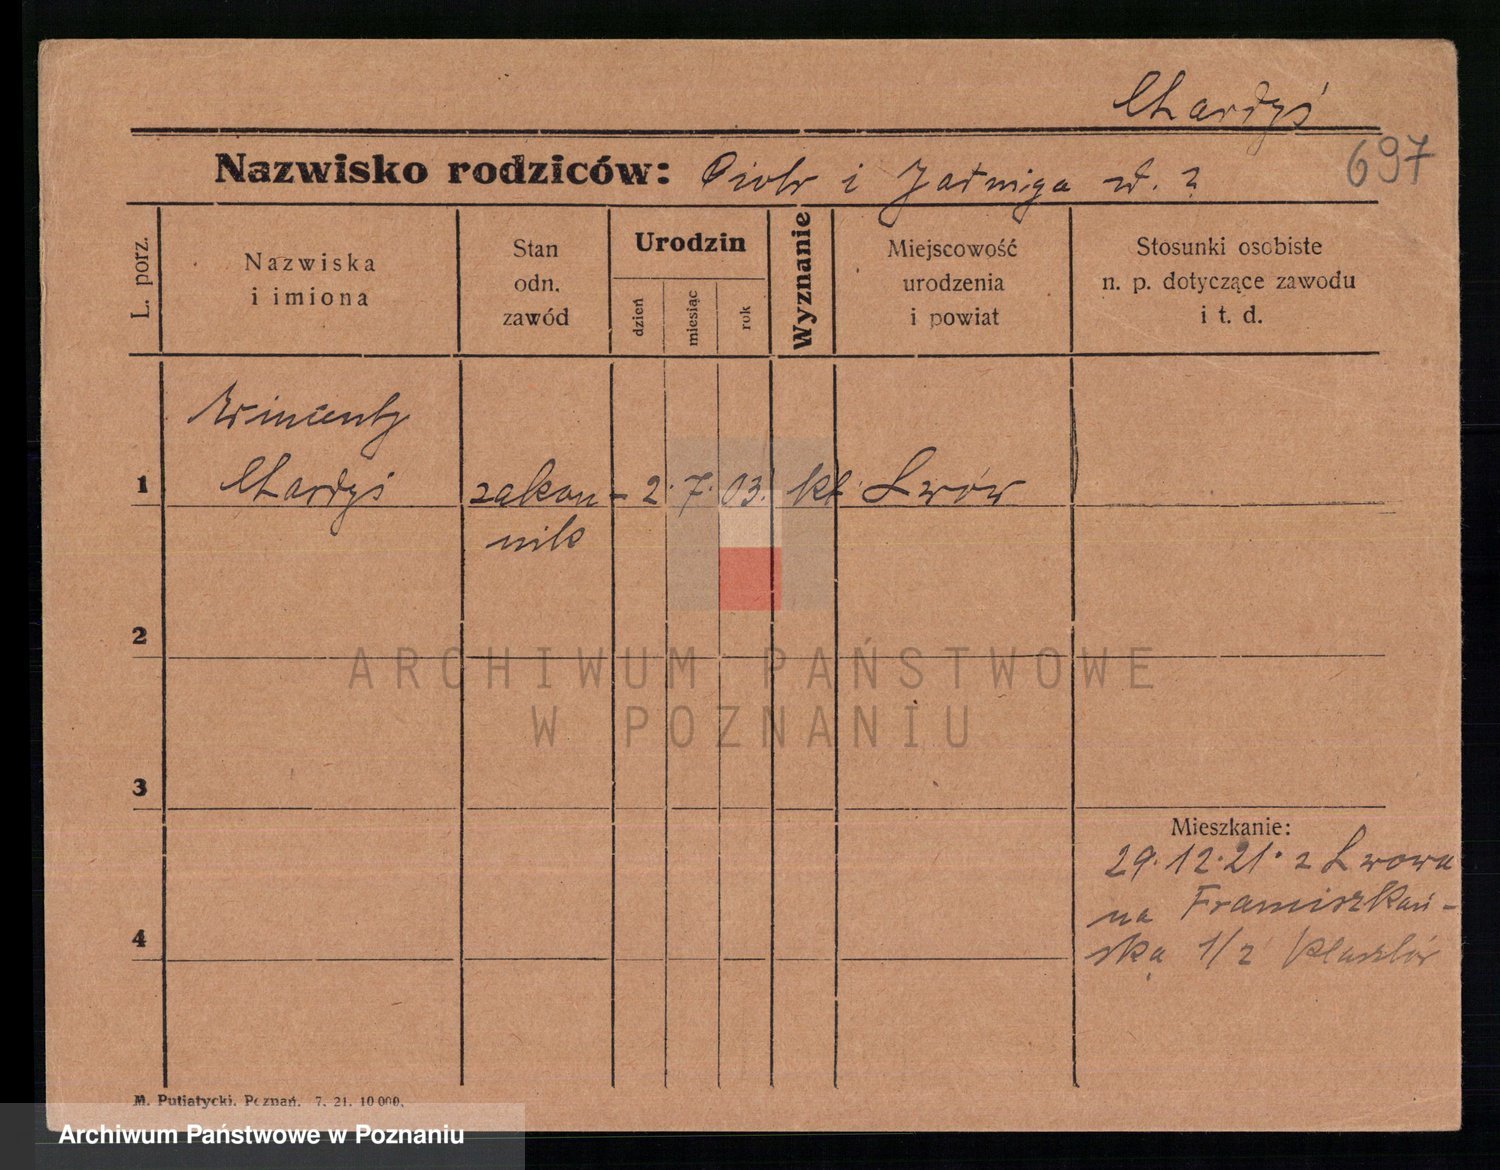 Chardyś
697
Nazwisko rodziców: Piotr i Jadwiga d. ?
L. porz.
Nazwiska
i imiona
Stan
odn.
zawód
Urodzin
dzień
miesiąc
rok
Wyznanie
Miejscowość
urodzenia
i powiat
Stosunki osobiste
n. p. dotyczące zawodu
i t. d.
Wincenty
1 Chardyś zakon- 2. 7. 03. kt. Lwów
nik
2
ARCHIWUM PAŃSTWOWE
W POZNANIU
3
Mieszkanie:
29.12.21. z Lwowa
na Franciszkań-
ską 1/2 Klasztór
4
M. Putiatycki, Poznań. 7. 21. 10 000.
Archiwum Państwowe w Poznaniu